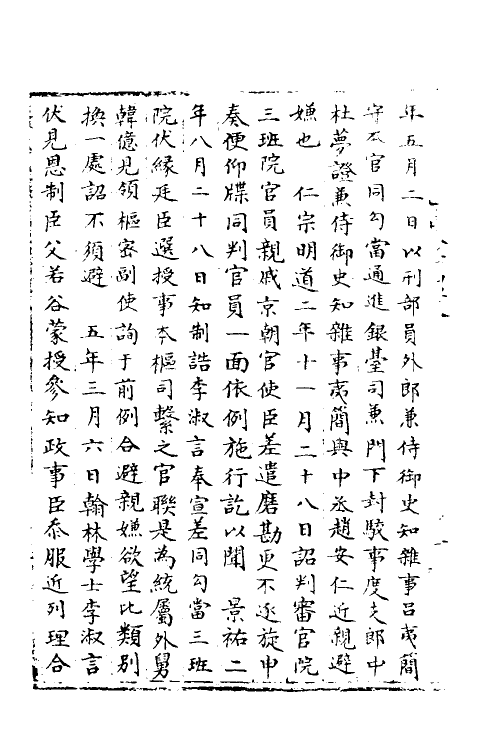 年五月二日以刑部員外郎兼侍御史知雜事呂夷簡
守本官同勾當通進銀臺司兼門下封駁事度支郎中
杜夢證兼侍御史知雜事夷簡與中丞趙安仁近親避
嫌也　仁宗明道二年十一月二十八日詔判審官院
三班院官員親戚京朝官使臣差遣磨勘更不逐旋申
奏便仰牒同判官員一面依例施行訖以聞　景祐二
年八月二十八日知制誥李淑言奉宣差同勾當三班
院伏緣廷臣選授事本樞司繫之官聯是為統屬外舅
韓億見領樞密副使詢于前例合避親嫌欲望比類別
換一處詔不須避　五年三月六日翰林學士李淑言
伏見恩制臣父若谷蒙授參知政事臣忝服近列理合